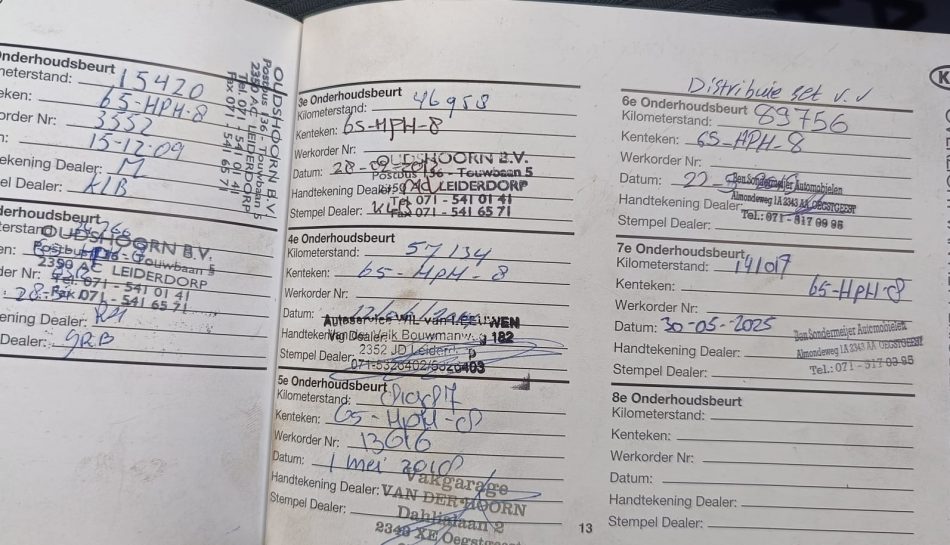 nderhoudsbeurt
meterstand: 15420
eken: 65-HPH-8
korder Nr: 3552
m: 15-12-09
ekening Dealer:
el Dealer: KIB
OUDSHOORN B.V.
Postbus 136 - Touwbaan 5
2350 AC LEIDERDORP
Tel. 071 - 541 01 41
Fax 071 - 541 65 71
derhoudsbeurt
terstand:
OUDSHOORN B.V.
Postbus 136 - Touwbaan 5
2350 AC LEIDERDORP
Tel. 071 - 541 01 41
Fax 071 - 541 65 71
en:
der Nr:
28-
ening Dealer:
Dealer: GRB
3e Onderhoudsbeurt
Kilometerstand: 46958
Kenteken: 65-HPH-8
Werkorder Nr:
Datum: 28-
Handtekening Dealer:
Stempel Dealer:
OUDSHOORN B.V.
Postbus 136 - Touwbaan 5
2350 AC LEIDERDORP
Tel. 071 - 541 01 41
Fax 071 - 541 65 71
4e Onderhoudsbeurt
Kilometerstand: 57134
Kenteken: 65-HPH-8
Werkorder Nr:
Datum:
Handtekening Dealer:
Stempel Dealer:
Autoservice WIL van LEEUWEN
Van Bouwmanweg 182
2352 JD Leiderdorp
5e Onderhoudsbeurt
Kilometerstand:
Kenteken: 65-HPH-8
Werkorder Nr: 13616
Datum: 1 mei 2018
Handtekening Dealer:
Stempel Dealer:
Vakgarage
VAN DER HOORN
Dahlialaan 2
2343 XE Oegst
13
Distributie set v.v
6e Onderhoudsbeurt
Kilometerstand: 89756
Kenteken: 65-HPH-8
Werkorder Nr:
Datum: 22-
Handtekening Dealer:
Stempel Dealer:
Ben Sondermeijer Automobielen
Almondeweg 1A 2343 AA OEGSTGEEST
Tel.: 071 - 517 09 95
7e Onderhoudsbeurt
Kilometerstand: 141017
Kenteken: 65-HPH-8
Werkorder Nr:
Datum: 30-05-2025
Handtekening Dealer:
Stempel Dealer:
Ben Sondermeijer Automobielen
Almondeweg 1A 2343 AA OEGSTGEEST
Tel.: 071 - 517 09 95
8e Onderhoudsbeurt
Kilometerstand:
Kenteken:
Werkorder Nr:
Datum:
Handtekening Dealer:
Stempel Dealer:
K